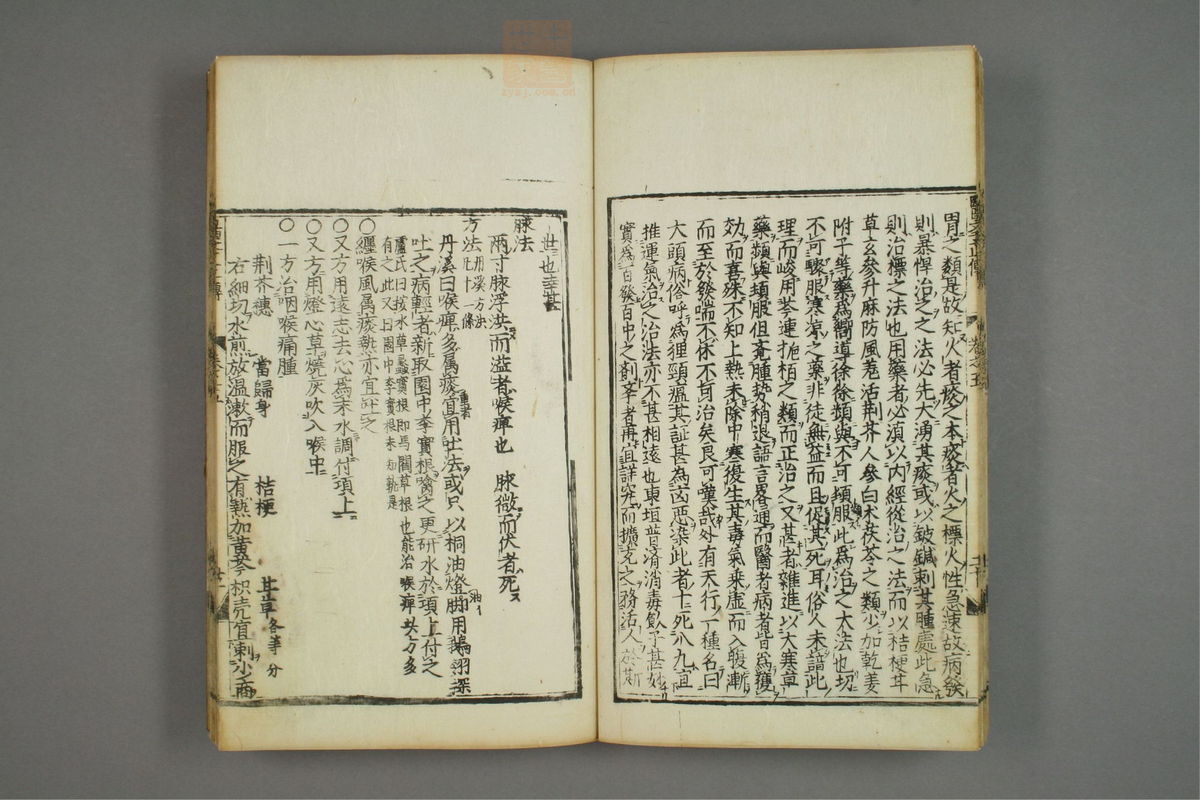 胃之類是故知火者痰之本痰者火之標火性急速故病發
則暴悍治之之法必先大湧其痰或以鈹鍼刺其腫處此急
則治標之法也用藥者必湏以內經從治之法而以桔梗甘
草玄參升麻防風羗活荆芥人參白木茯苓之類少加乾姜
附子等藥爲嚮導徐徐頻與不可頓服此爲治之大法也切
不可驟服寒凉之藥非徒無益而且促其死耳俗人未諳此
理而峻用芩連栢之類而正治之又甚者雜進以大寒草
藥頻與頓服但竟腫勢稍退語言畧通而醫者病者皆爲獲
効而喜殊不知上熱未除中寒復生其毒氣乗虛而入腹漸
而至於發喘不休不可治矣良可嘆哉外有天行一種名曰
大頭病俗呼爲狸頸瘟其証甚爲㐫惡染此者十死八九宜
推運氣治之治法亦不甚相遠也東垣普濟消毒飲子甚妙
實爲百發百中之剤宰者再宜詳究而擴充之務活人於斯
世也幸甚
脉法
兩寸脉浮洪而溢者喉痺也 脉微而伏者死
方法丹溪方法凡十一條
丹溪曰喉痺多属痰重者宜用吐法或只以桐油燈脚用鵝翎深
吐之病輕者新取園中李實根噙之更研水於項上付之
盧氏曰挼水草蠡實根即馬閵草根也能治喉痺其方多
有之此又曰園中李實根未知孰是
○纒喉風属痰熱亦宜吐之
○又方用遠志去心爲末水調付項上
○又方用燈心草燒灰吹入喉中
○一方治咽喉痛腫
荆芥穗 當歸身 桔梗 甘草各等分
右細切水煎放溫漱而服之有熱加黄芩枳壳宜刺少商